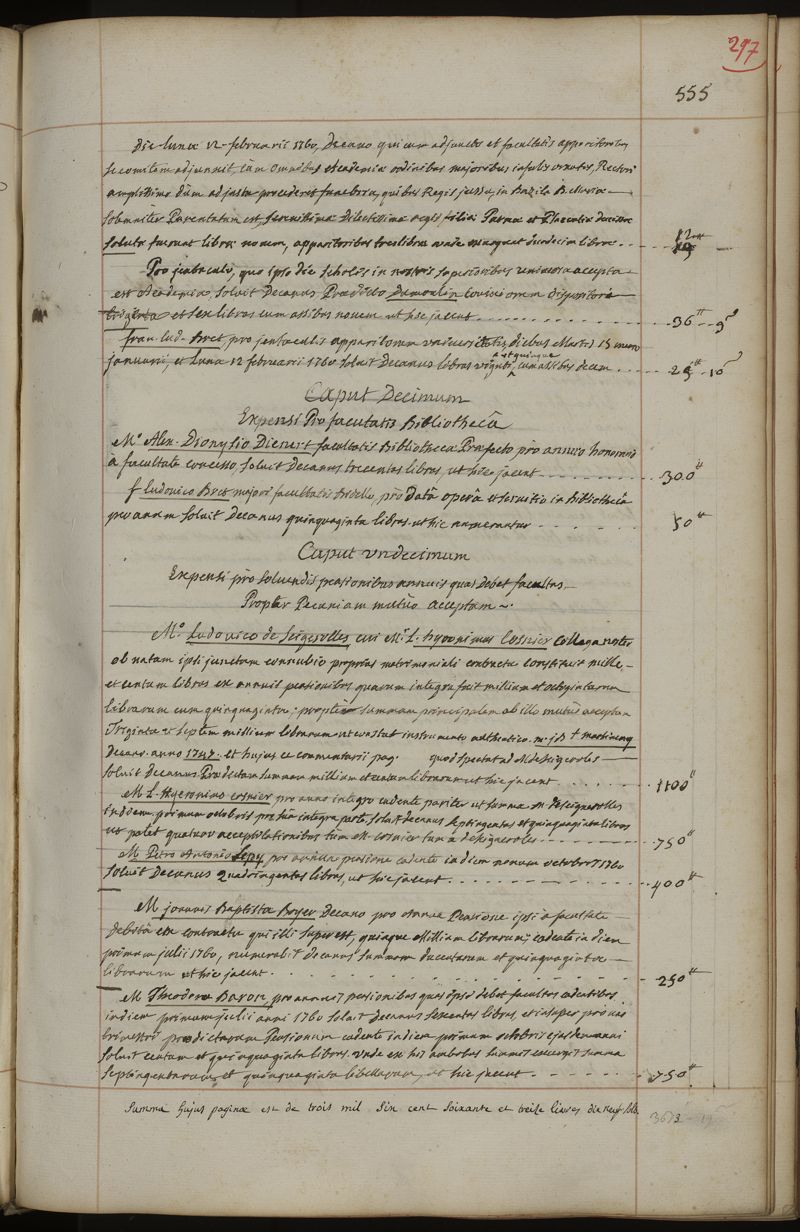 297
555
Die lunæ 12 februarii 1760, Decano qui cum adjunctis et facultatis apparitoribus
se comitem adjunxit, cum omnibus Academiæ ordinibus majoribus ornatus, Rectori
amplissimo dum ad justa procederet funebria, quibus Regis jussu, in Bazilica B. Mariæ
solemniter Parentatum est serenissimæ Dilectissimæ regis filiæ Parmæ et Placentiæ Ducissæ
soluti fuerunt libræ novem, apparitoribus tres libræ unde emergunt duodecim libræ . . 12 ₶
Pro jentaculo, quo ipso die scholis in nostris superioribus universa accepta
est Academia, solvit Decanus Prædicto Dumoulin conviviorum dispositori
triginta et sex libras cum assibus novem ut hic jacent . . . 36 ₶ 9 s
fran. Lud. Bret, pro jentaculis apparitorum universitatis, diebus Martis 15 mens
januarii, et Lunæ 12 februarii 1760 solvit Decanus libras viginti et quinque, cum assibus decem . . . 25 ₶ 10 s
Caput Decimum
Expensi Pro facultatis Bibliothecâ
Mo. Alex. Dionysio Dienert facultatis Bibliothecæ Præfecto pro annuo honorario
à facultate concesso, solvit Decanus trecentas libras, ut hic jacent . . . 300 ₶
f. Ludovico Bret majori facultatis Bidello, pro Datâ operâ et servitio in Bibliothecâ
per annum solvit Decanus quinquaginta libras ut hic numerantur . . . 50 ₶
Caput undecimum
Expensi pro solvendis pensionibus annuis quas Debet facultas
Propter Pecuniam mutuo acceptam
Mo. Ludovico de Seigerolles, cui Mr. L. hyeronimus Cosnier Collega noster
ob natam ipsi junctam connubio proprias matrimoniali contractu constituit mille,
et centum libras ex annuis pensionibus quarum integra fuit millium et octoginta
librarum cum quinquaginta, propter summam principalem ab illo mutuo acceptam
Triginta et septem millium librarum ut constat instrumento authentico. m. jB t. martinenq
Decano. anno 1747. et hujus ce commentarii pag. quod spectat ad M. deseigerolles
solvit Decanus Prædictam summam millium et centum librarum ut hic jacent . . . 1100 ₶
M. L. hyeronimo cosnier, pro anno integro cadente pariter ut summa M. deseignerolles
in diem primum octobris pro suâ integra parte, solvit decanus septingentas et quinquaginta libras
ut patet quatuor acceptilationibus tum M. cosnier tum a deseignerolles . . . 750 ₶
M. Petro Antonio Lepy, pro annua pensione cadente in diem nonum octobris 1760
solvit Decanus Quadringentas libras, ut hic jacent . . . 400 ₶
M joannes Baptista Boyer Decano pro annua Pensione ipsi à facultate
debitâ ex contractu qui illi superest, quinque Millium librarum, cadente in diem
primum julii 1760, numeravit decanus summam ducentarum et quinquaginta
librarum ut hic jacent . . . 250 ₶
M Theodoro Baron, pro annuis pensionibus quas ipsi debet facultas cadentibus
in diem primum julii anni 1760 solvit Decanus sexcentas libras, et insuper pro uno
trimestri prædictarum Pensionum cadente in diem primum octobris ejusdem anni
solvit centum et quinquaginta libras. unde ex his ambobus summis emergit summa
septingentarum et quinquaginta libellarum, ut hic jacent . . . 750 ₶
Summa hujus paginæ est de trois mil Six cent Soixante et treize livres dix neuf sols. 3673 19